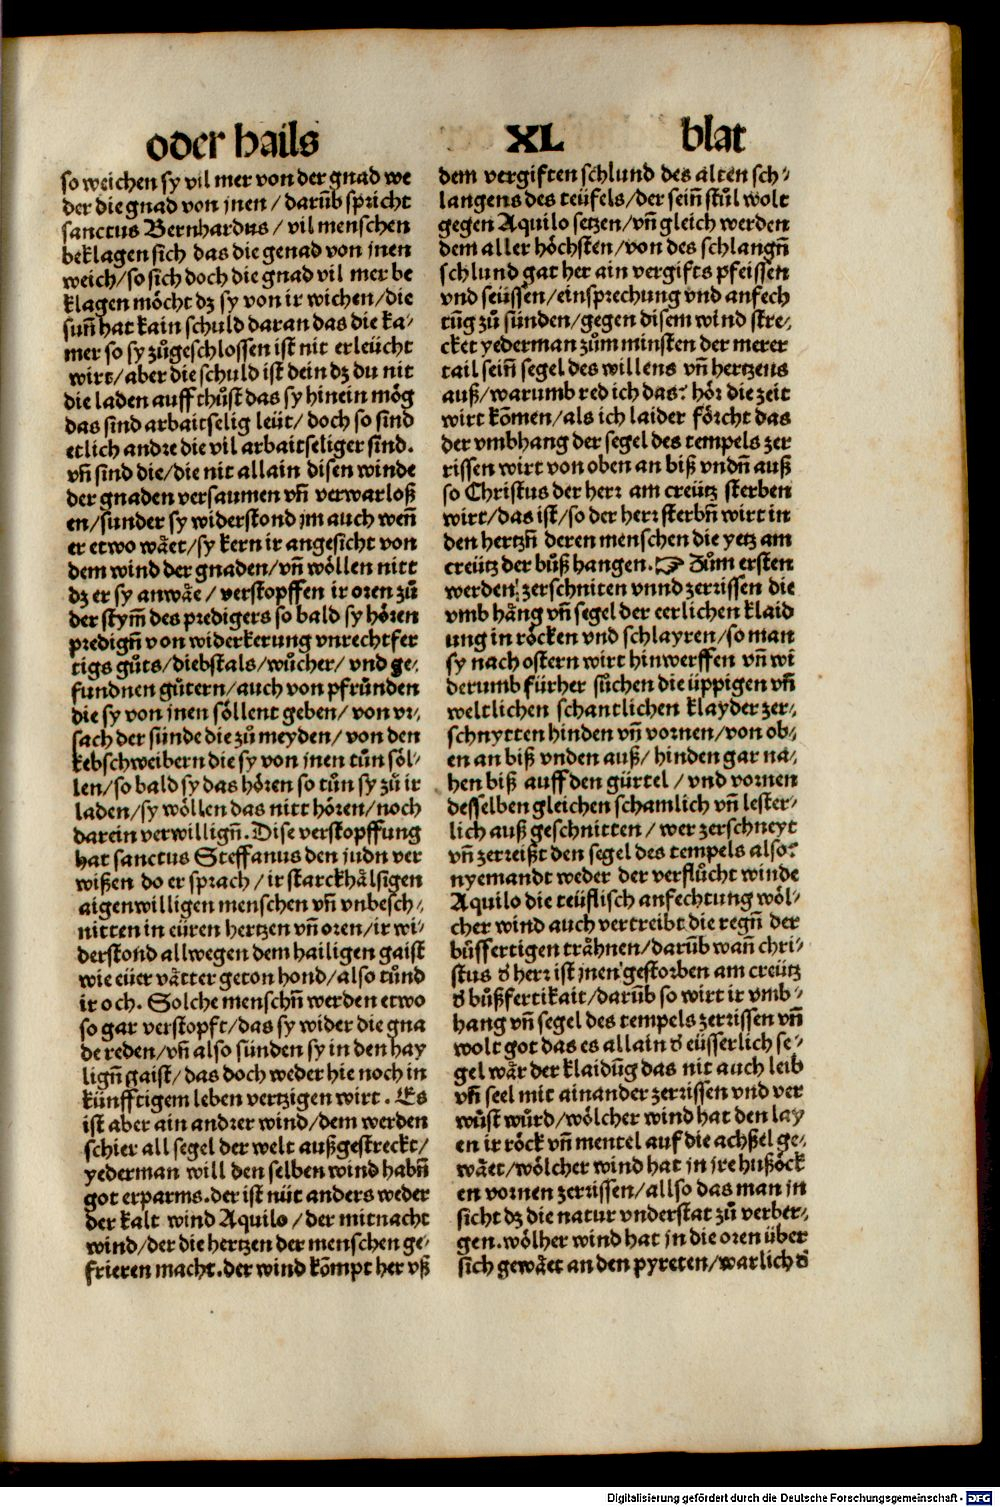 oder hails XL blat
so weichen sy vil mer von der gnad we
der die gnad von jnen / darūb spricht
sanctus Bernhardus / vil menschen
beklagen sich das die genad von jnen
weich/so sich doch die gnad vil mer be
klagen möcht dz sy von ir wichen/die
sun̄ hat kain schuld daran das die ka⸗
mer so sy zůgeschlossen ist nit erleücht
wirt/aber die schuld ist dein dz du nit
die laden auff thůst das sy hinein mög
das sind arbaitselig leüt/ doch so sind
etlich andre die vil arbaitseliger sind.
vn̄ sind die/die nit allain disen winde
der gnaden versaumen vn̄ verwarloß
en/sunder sy widerstond jm auch wen̄
er etwo wäet/sy kern ir angesicht von
dem wind der gnaden/vn̄ wöllen nitt
dz er sy anwäe / verstopffen ir oren zů
der stym̄ des predigers so bald sy hören
predign̄ von widerkerung vnrechtfer
tigs gůts/diebstals/wůcher/ vnd ge⸗
fundnen gůtern/auch von pfründen
die sy von jnen söllent geben/ von vr⸗
sach der sünde die zů meyden/ von den
kebschweibern die sy von jnen tůn söl⸗
len/so bald sy das hören so tůn sy zů ir
laden/sy wöllen das nitt hören/noch
darein verwillign̄. Dise verstopffung
hat sanctus Steffanus den judn ver
wißen do er sprach / ir starckhälsigen
aigenwilligen menschen vn̄ vnbesch⸗
nitten in eüren hertzen vn̄ oren/ir wi⸗
derstond allwegen dem hailigen gaist
wie eüer vätter geton hond/also tůnd
ir och. Solche menschn̄ werden etwo
so gar verstopft/das sy wider die gna
de reden/vn̄ also sünden sy in den hay
lign̄ gaist/das doch weder hie noch in
künfftigem leben vertzigen wirt . Es
ist aber ain andrer wind/dem werden
schier all segel der welt außgestreckt/
yederman will den selben wind habn̄
got erparms.der ist nüt anders weder
der kalt wind Aquilo / der mitnacht
wind/der die hertzen der menschen ge⸗
frieren macht.der wind kōmpt her vß
dem vergiften schlund des alten sch⸗
langens des teüfels/der sein̄ stůl wolt
gegen Aquilo setzen/vn̄ gleich werden
dem aller höchsten/von des schlangn̄
schlund gat her ain vergifts pfeissen
vnd seüssen/einsprechung vnd anfech
tūg zů sünden/gegen disem wind stre⸗
cket yederman zům minsten der merer
tail sein̄ segel des willens vn̄ hertzens
auß/warumb red ich das? hör die zeit
wirt kōmen/als ich laider förcht das
der vmbhang der segel des tempels zer
rissen wirt von oben an biß vndn̄ auß
so Christus der herr am creütz sterben
wirt/das ist/so der herr sterbn̄ wirt in
den hertzn̄ deren menschen die yetz am
creütz der bůß hangen.☞ Zům ersten
werden zerschniten vnnd zerrissen die
vmb häng vn̄ segel der eerlichen klaid
ung in röcken vnd schlayren/so man
sy nach ostern wirt hinwerffen vn̄ wi
derumb fürher sůchen die üppigen vn̄
weltlichen schantlichen klayder zer⸗
schnytten hinden vn̄ vornen/von ob⸗
en an biß vnden auß/ hinden gar na⸗
hen biß auff den gürtel / vnd vornen
desselben gleichen schamlich vn̄ lester⸗
lich auß geschnitten / wer zerschneyt
vn̄ zerreißt den segel des tempels also?
nyemandt weder der verflůcht winde
Aquilo die teüflisch anfechtung wöl⸗
cher wind auch vertreibt die regn̄ der
bůssfertigen trähnen/darūb wan̄ chri⸗
stus d̕ herr ist jnen gestorben am creütz
d̕ bůßfertikait/darūb so wirt ir vmb⸗
hang vn̄ segel des tempels zerrissen vn̄
wolt got das es allain d̕ eüsserlich se⸗
gel wär der klaidūg das nit auch leib
vn̄ seel mit ainander zerrissen vnd ver
wüst würd/wölcher wind hat den lay
en ir röck vn̄ mentel auf die achßel ge⸗
wäet/wölcher wind hat jn jre hußöck
en vornen zerrissen/allso das man jn
sicht dz die natur vnderstat zů verber⸗
gen.wölher wind hat jn die oren über
sich gewäet an den pyreten/warlich d̕
Digitalisierung gefördert durch die Deutsche Forschungsgemeinschaft - DFG